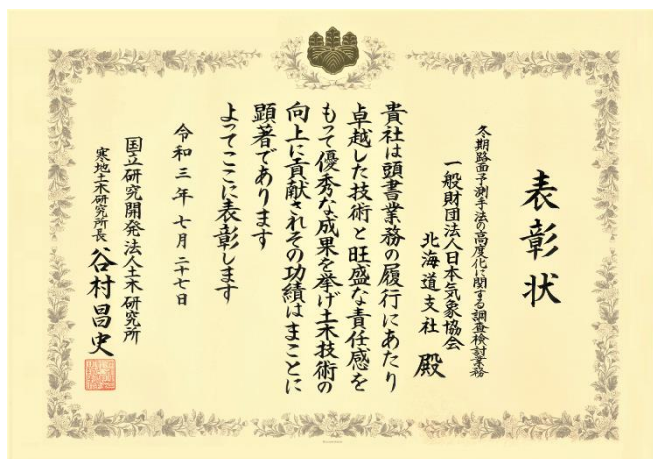 表彰状
冬期路面予測手法の高度化に関する調査検討業務
一般財団法人日本気象協会
北海道支社 殿
貴社は頭書業務の履行にあたり
卓越した技術と旺盛な責任感を
もって優秀な成果を挙げ土木技術の
向上に貢献されその功績はまことに
顕著であります
よってここに表彰します
令和三年七月二十七日
国立研究開発法人土木研究所
寒地土木研究所長 谷村昌史